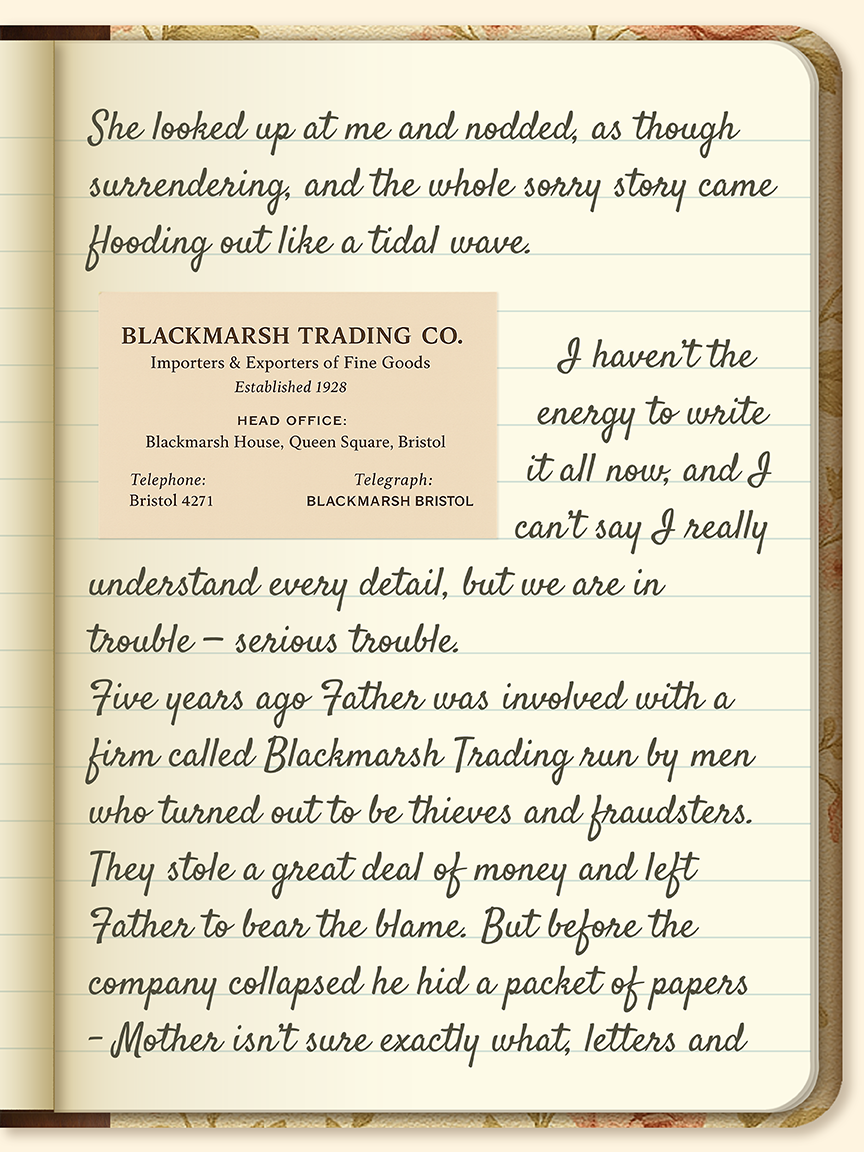 She looked up at me and nodded, as though
surrendering, and the whole sorry story came
flooding out like a tidal wave.
BLACKMARSH TRADING CO.
Importers & Exporters of Fine Goods
Established 1928
HEAD OFFICE:
Blackmarsh House, Queen Square, Bristol
Telephone:
Bristol 4271
Telegraph:
BLACKMARSH BRISTOL
I haven't the
energy to write
it all now, and I
can't say I really
understand every detail, but we are in
trouble – serious trouble.
Five years ago Father was involved with a
firm called Blackmarsh Trading run by men
who turned out to be thieves and fraudsters.
They stole a great deal of money and left
Father to bear the blame. But before the
company collapsed he hid a packet of papers
– Mother isn't sure exactly what, letters and